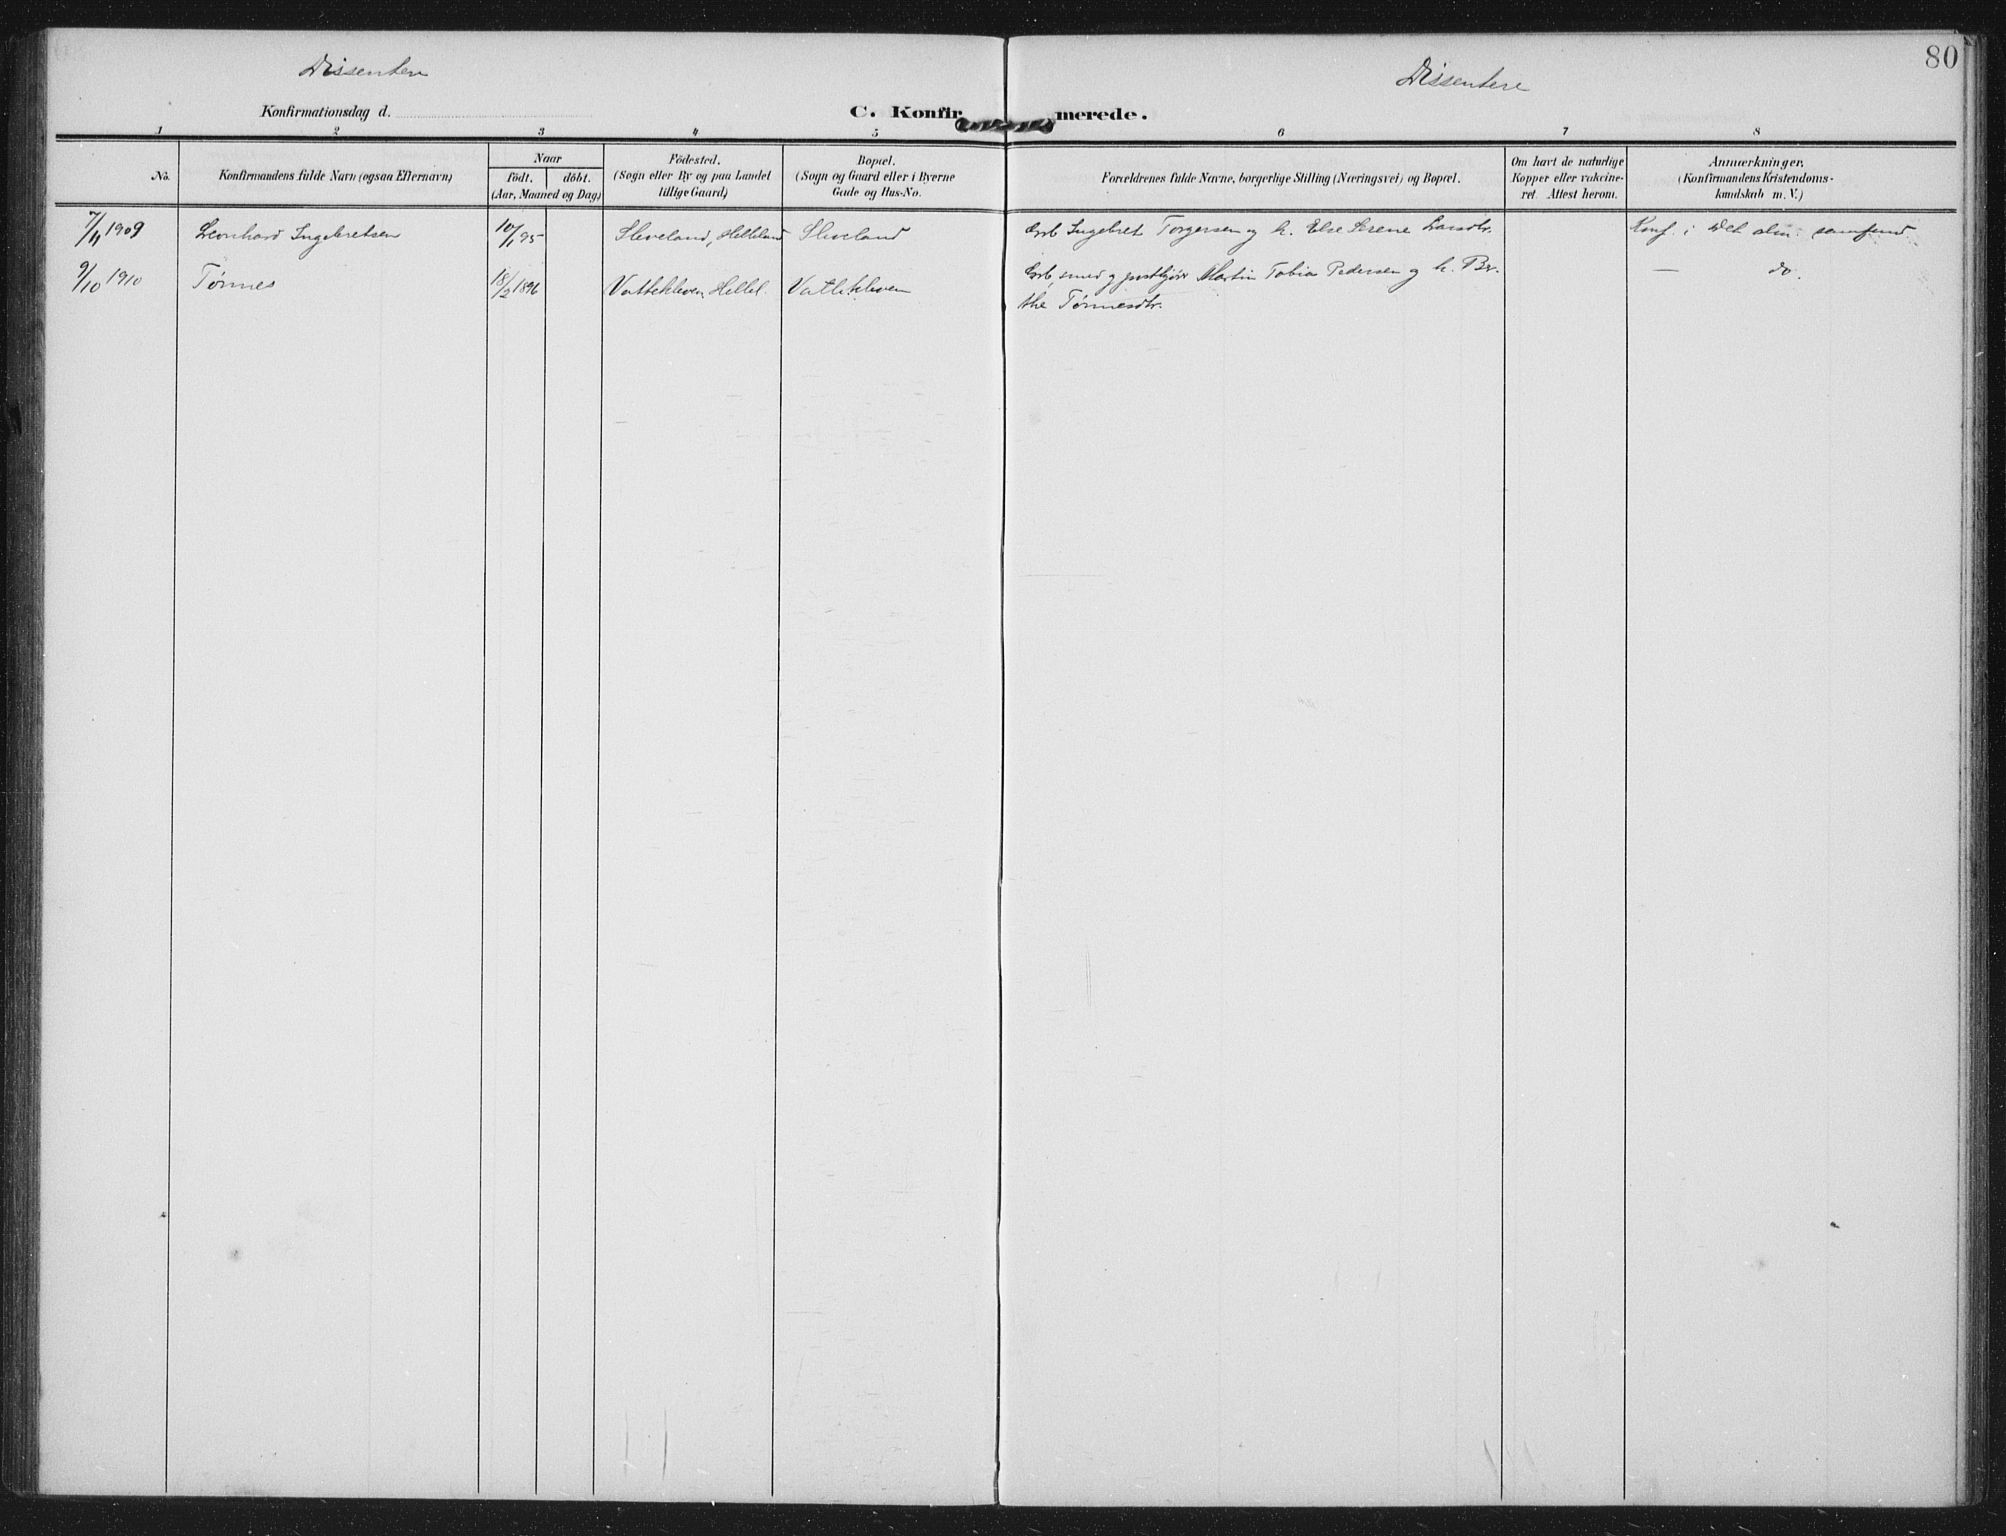 80
Dissentere
Dissentere
Konfirmationsdag d.
C. Konfirmerede.
1 2 3 4 5 6 7 8
No.
Konfirmandens fulde Navn (ogsaa Efternavn)
Naar
födt. döbt.
(Aar, Maaned og Dag)
Födested.
(Sogn eller By og paa Landet
tillige Gaard)
Bopæl.
(Sogn og Gaard eller i Byerne
Gade og Hus-No.
Forældrenes fulde Navne, borgerlige Stilling (Næringsvei) og Bopæl.
Om havt de naturlige
Kopper eller vakcine-
ret. Attest herom.
Anmærkninger.
(Konfirmandens Kristendoms-
kundskab m. V.)
7/11 1909 Leonhard Ingebretsen 10/1 95 Sleveland, Helleland Sleveland Grb. Ingebret Torgersen og h. Else Serene Larsdtr. Konf. i Det alm. samfund.
9/10 1910 Tønnes 18/2 1896 Vatlekleven, Hellel. Vatlekleven Grb, smed og Martin Tobias Pedersen og h. Ber- — do.
the Tønnesdtr.